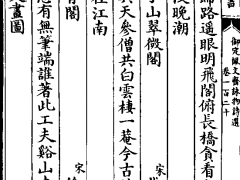 御定佩文齋詠物詩選
卷一百二十
歸路遥眼明飛閣俯長橋貪看
晚潮
山翠微閣 宋
天參僧共白雲棲一菴今古
閣 宋
在江南
有無筆端誰著此工夫谿山
畫圖